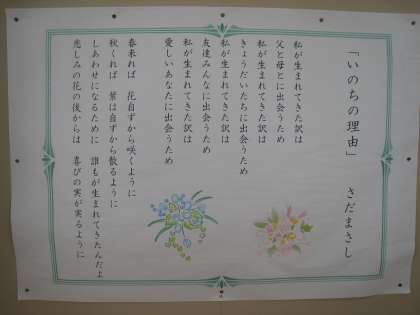 「いのちの理由」　さだまさし
私が生まれてきた訳は
父と母とに出会うため
私が生まれてきた訳は
きょうだいたちに出会うため
私が生まれてきた訳は
友達みんなに出会うため
私が生まれてきた訳は
愛しいあなたに出会うため
春来れば　花自ずから咲くように
秋くれば　葉は自ずから散るように
しあわせになるために　誰もが生まれてきたんだよ
悲しみの花の後からは　喜びの実が実るように